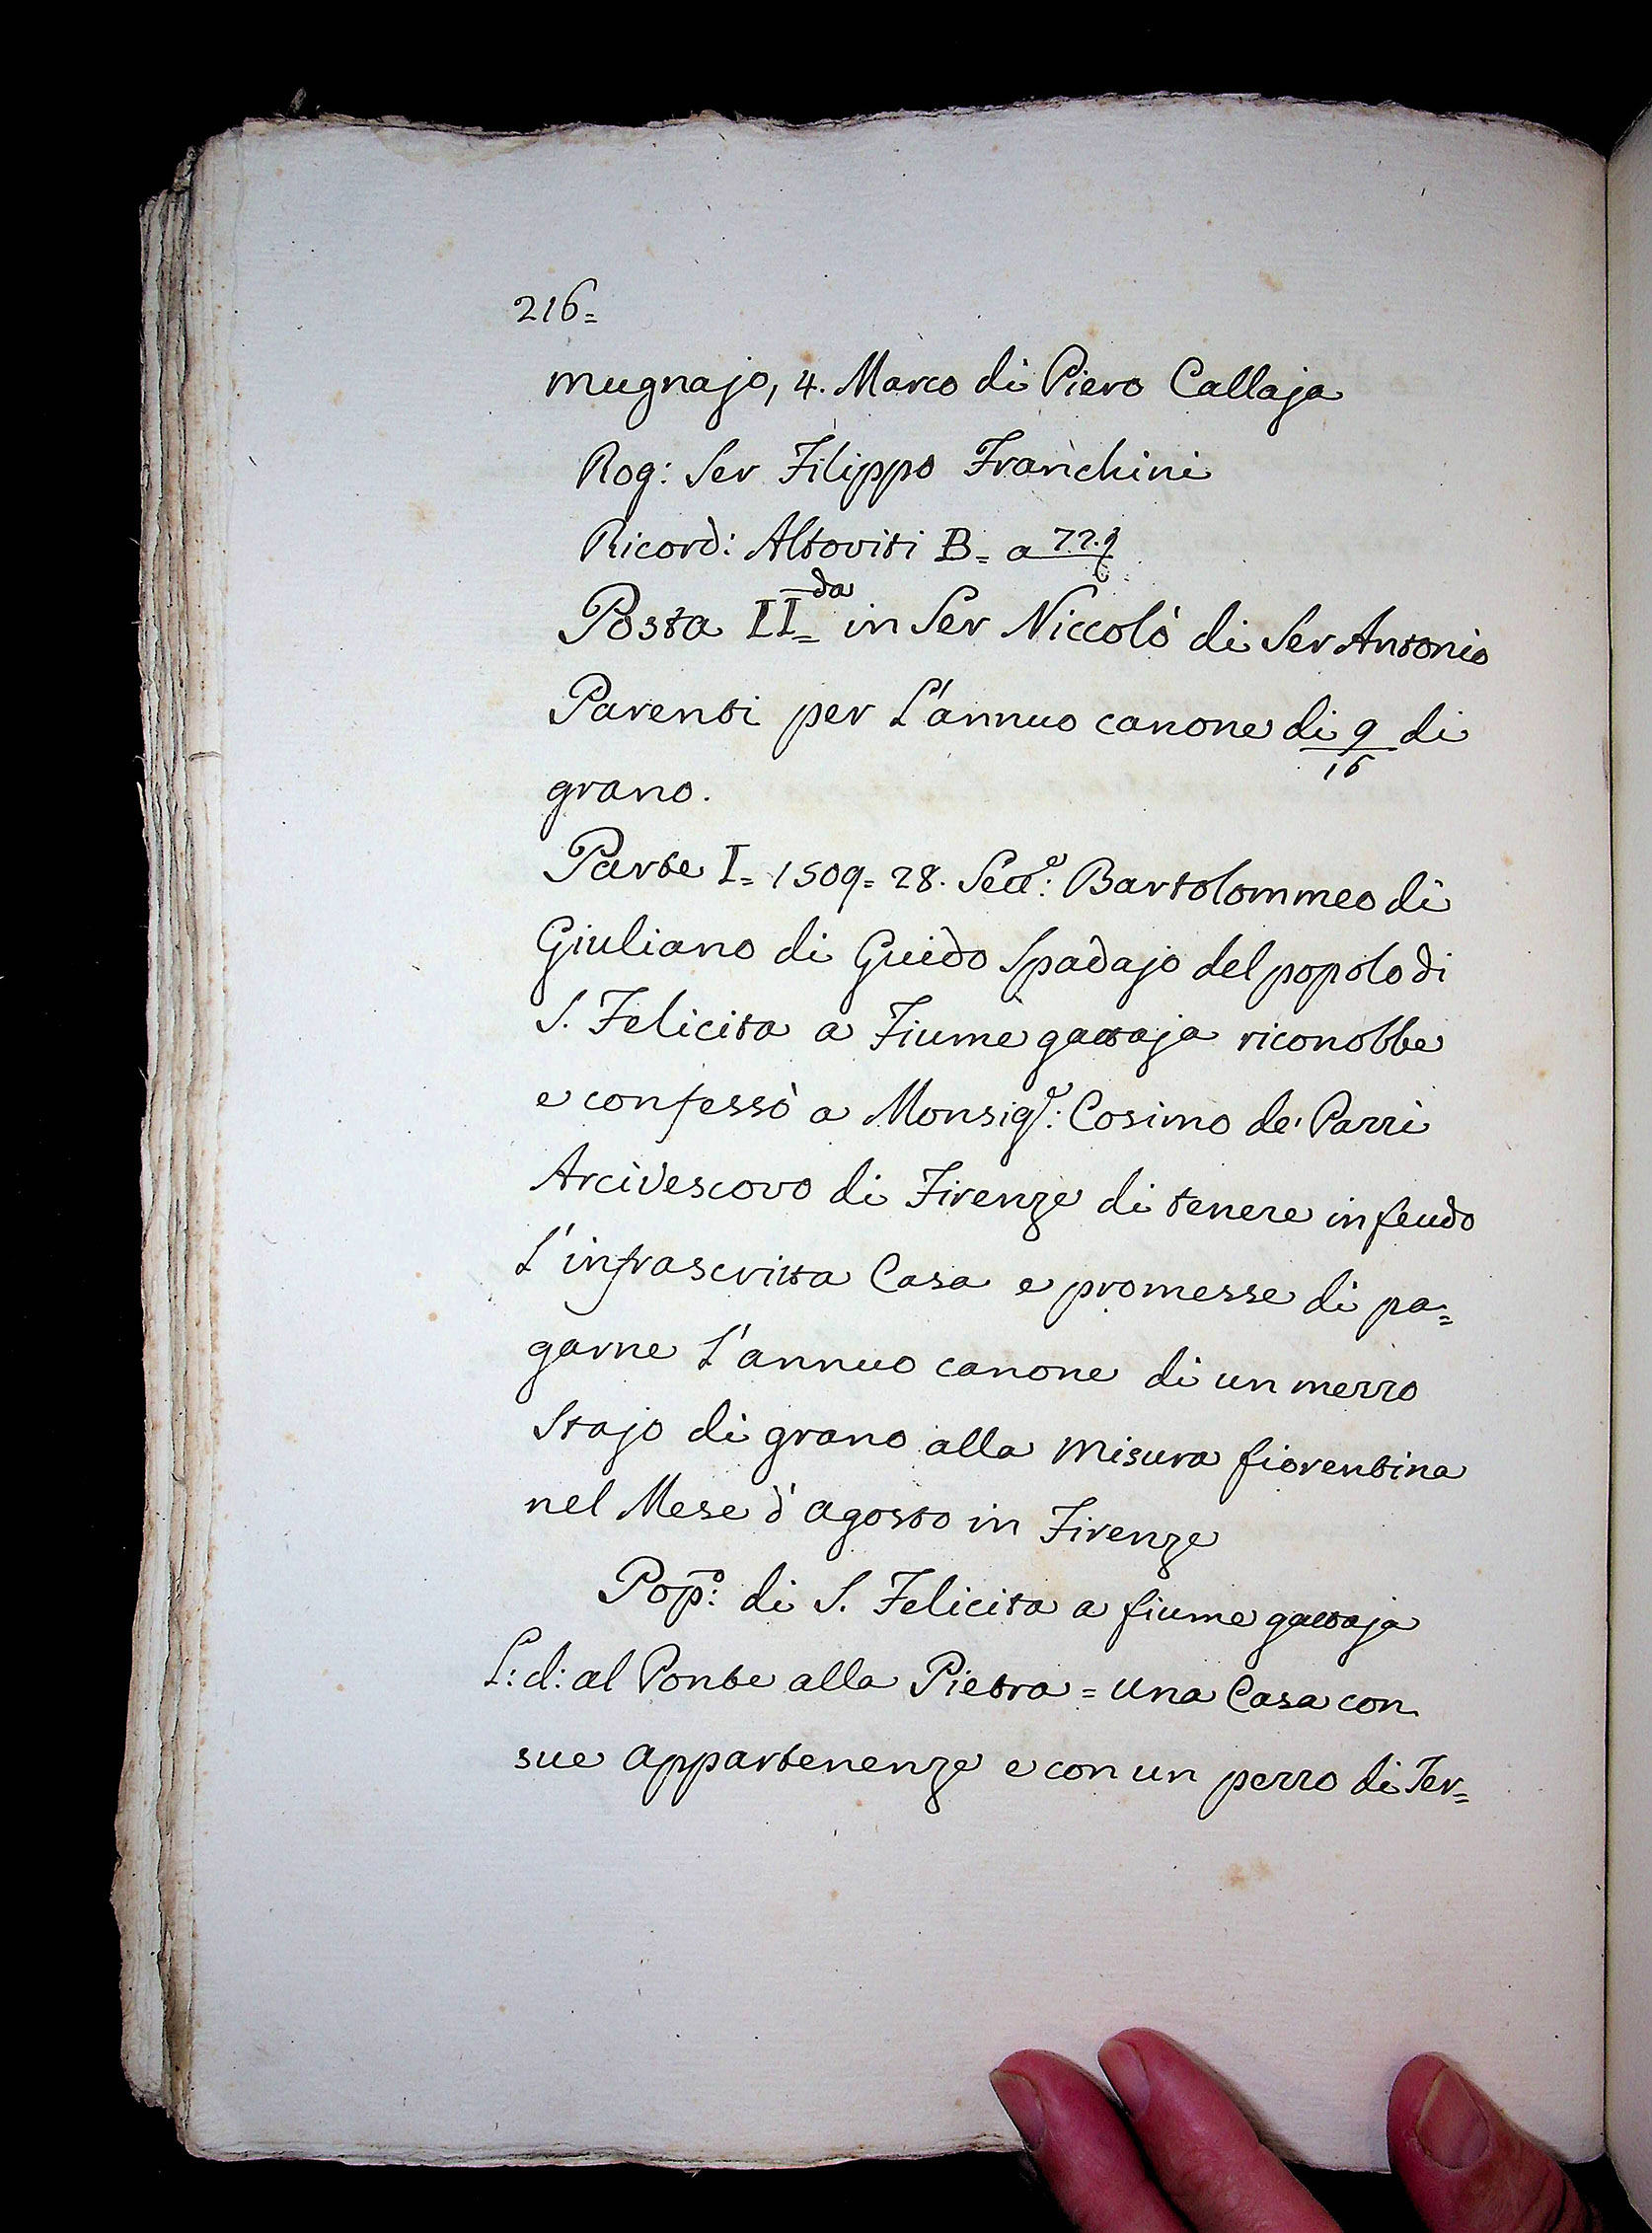 216=
mugnajo, 4. Marco di Piero Callaja
Rog: Ser Filippo Franchini
Ricord: Altoviti B= a
Posta II=da in Ser Niccolò di Ser Antonio
Parenti per L'annuo canone di 9/16 di
grano.
Parte I= 1509= 28. Sett.e: Bartolommeo di
Giuliano di Guido Spadajo del popolo di
S. Felicita a Fiume gattaja riconobbe
e confessò a Monsig.r: Cosimo de' Pazzi
Arcivescovo di Firenze di tenere in feudo
L'infrascritta Casa e promesse di pa=
garne L'annuo canone di un mezzo
Stajo di grano alla misura fiorentina
nel Mese d'agosto in Firenze
Pop.o: di S. Felicita a fiume gattaja
L: d: al Ponte alla Pietra = una Casa con
sue appartenenze e con un pezzo di Ter=